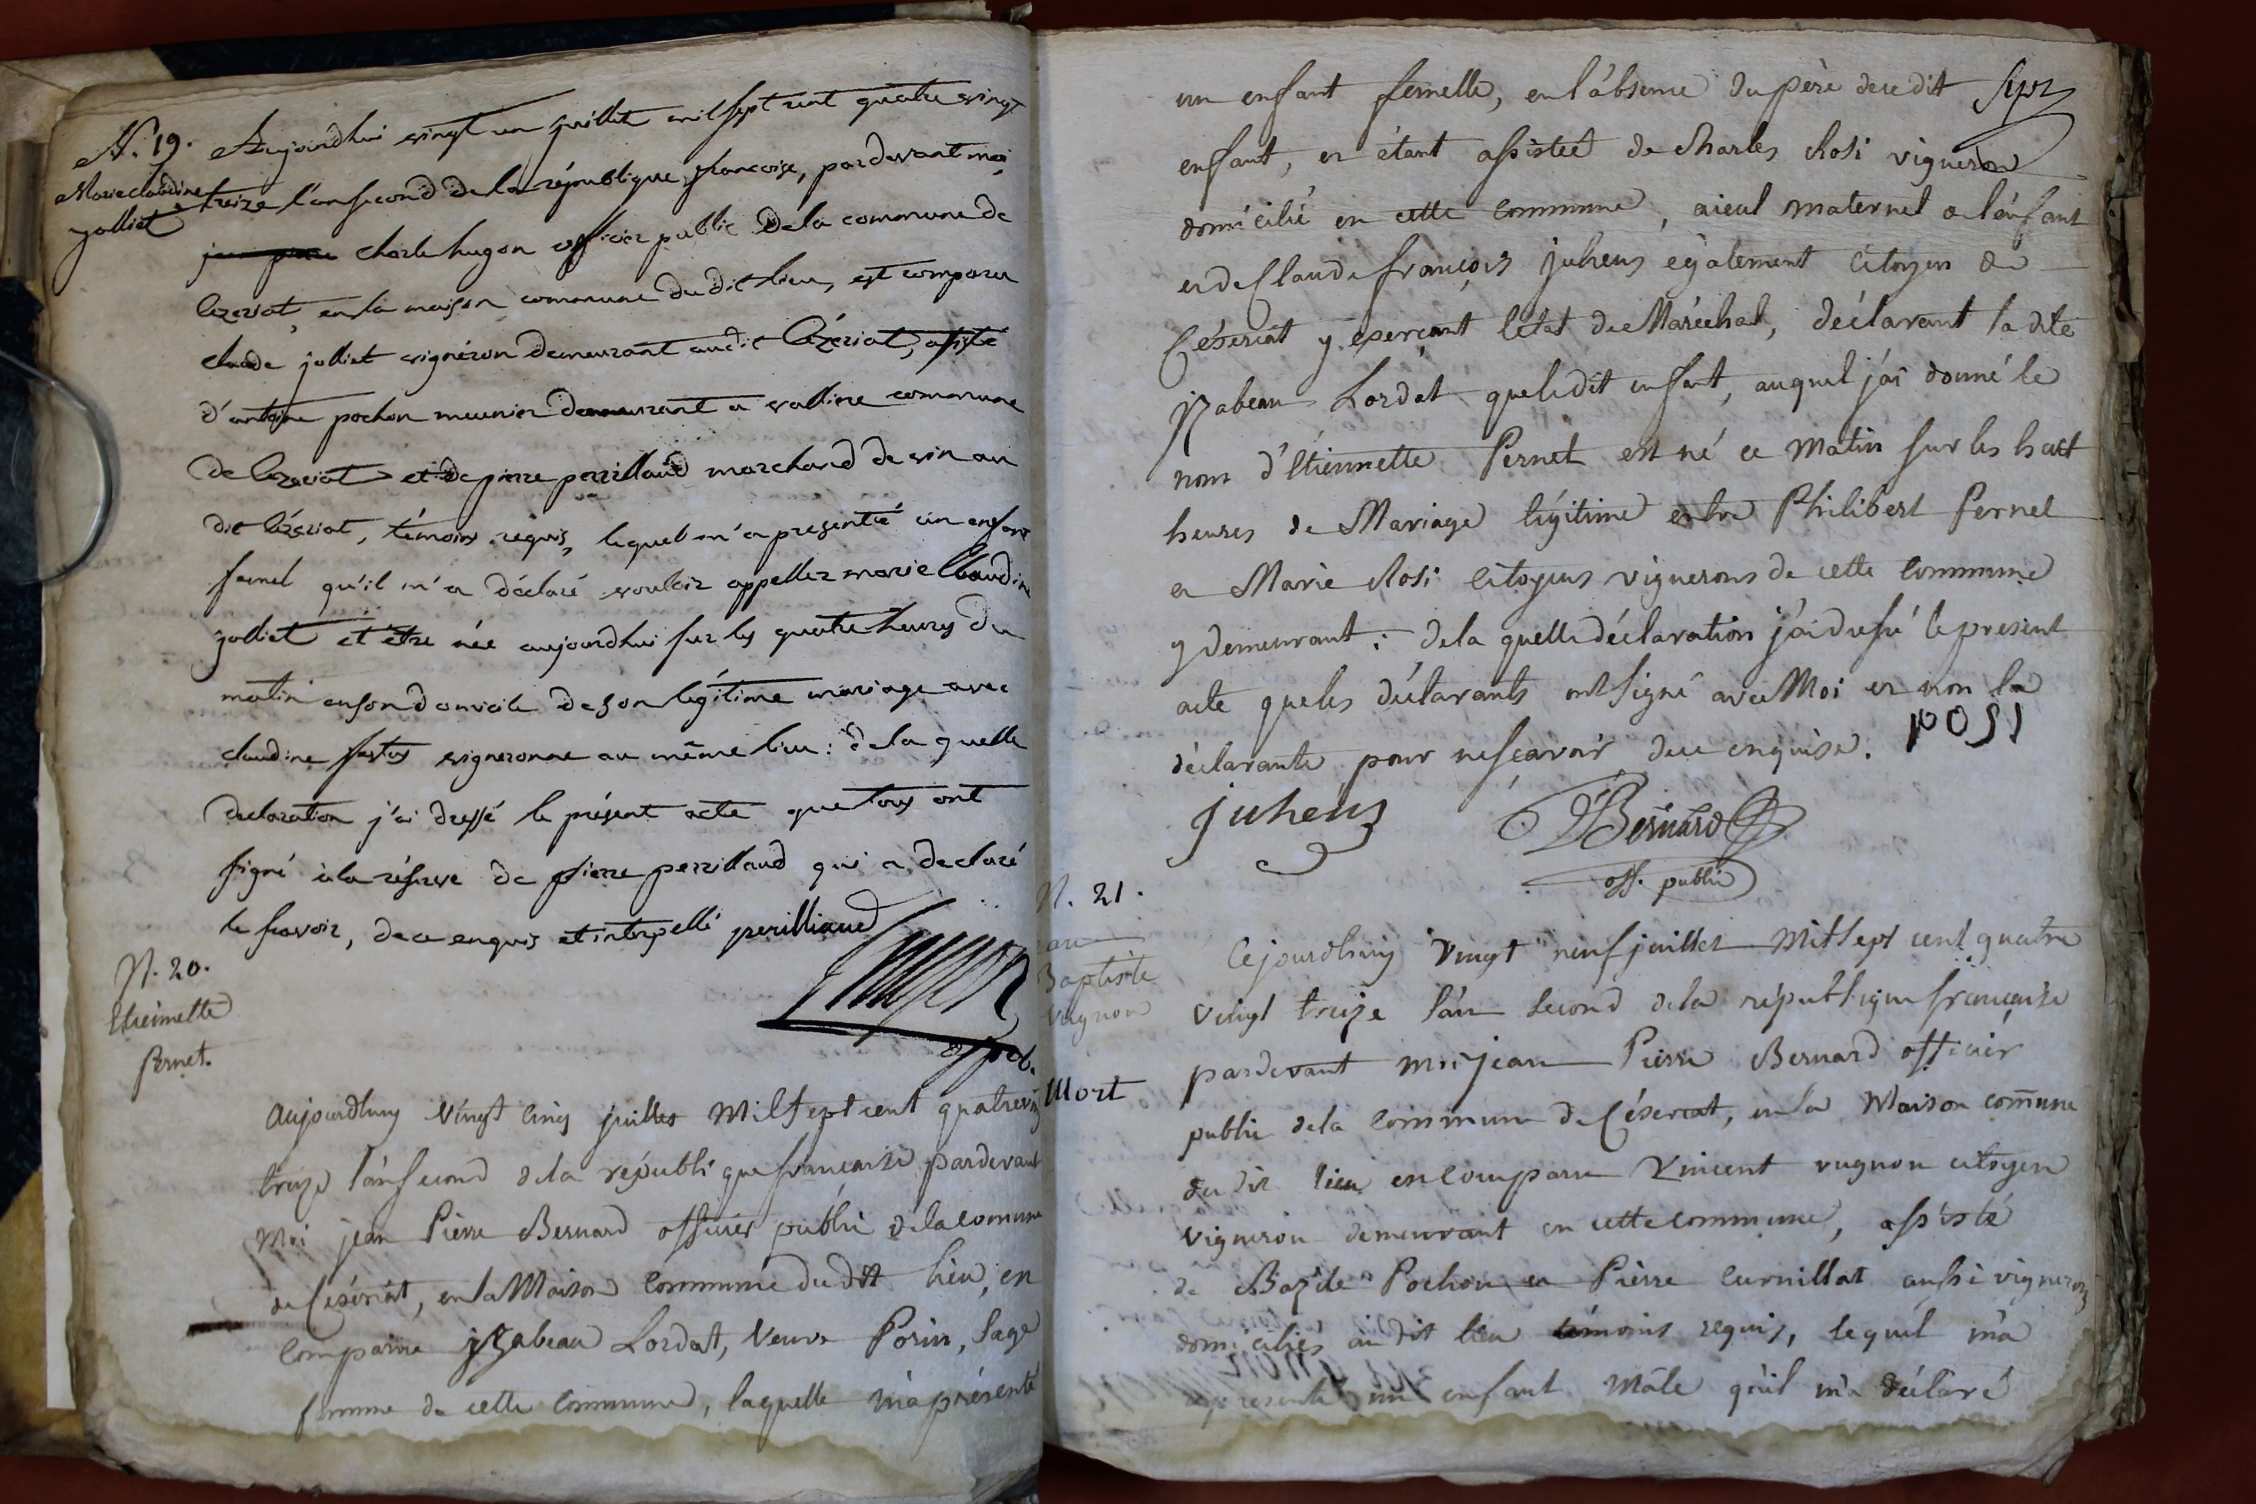 N. 19.
Marie claudine
jolliet
Aujourdhui vingt un juillet mil sept cent quatre vingt
treize l'an second de la république francoise, pardevant moi
charle hugon officier public de la commune de
Cezeriat, en la maison commune du dit lieu, est comparu
claude jolliet vigneron demeurant audit Cézériat, assisté
d'antoine pochon meunier demeurant a valline commune
de Cezeriat et de pierre perrilliaud marchand de vin au
dit Cézériat, témoins requis, lequel m'a presenté un enfant
femel qu'il m'a déclaré vouloir appeller marie Claudine
jolliet et être née aujourdhui sur les quatre heures du
matin en son domicile de son légitime mariage avec
claudine vigneronne au même lieu : de la quelle
declaration j'ai dressé le présent acte que tous ont
signé à la réserve de pierre perrillaud qui a declaré
le scavoir, de ce enquis et interpellé perilliaud
hugon
off pub.
N. 20.
Etiennette
Pernet.
Aujourdhuy vingt cinq juillet Mil sept cent quatrevingt
treize l'an second de la république françaisse pardevant
Moi jean Pierre Bernard officier public de la comune
de Césériat, en la Maison Commune du dit lieu, en
Comparue jzabeau Lordat, veuve Porin, sage
femme de cette Commune, laquelle m'a présenté
un enfant femelle, en l'absence du père de ce dit
enfant, et étant assistée de Charles Rosi vigneron
domicilié en cette Commune, aieul maternel de l'enfant
et de Claude françois juhens également Citoyen de
Céseriat y exerçant l'état de Maréchal, déclarant la dite
jzabeau Lordat que ledit enfant, auquel j'ai donné le
nom d'Etiennette Pernet est né ce Matin sur les huit
heures de Mariage légitime entre Philibert Pernet
et Marie Rosi Citoyens vignerons de cette Commune
y demeurant : de la quelle déclaration j'ai dressé le present
acte que les déclarants ont signé avec Moi et non la
déclarante pour ne sçavoir de ce enquise. ROSI
juhens
Bernard
off. public
N. 21.
Baptiste
vugnon
Mort
Cejourdhuy vingt neuf juillet Mil sept cent quatre
vingt treize l'an second de la république française
pardevant moi jean Pierre Bernard officier
public de la Commune de Céseriat, en la Maison comune
du dit lieu en Comparu Vincent vugnon citoyen
vigneron demeurant en cette commune, assisté
de Bazile Pochon et Pierre Curnillat aussi vignerons
domiciliés au dit lieu témoins requis, lequel m'a
présenté un enfant Mâle qu'il m'a déclaré